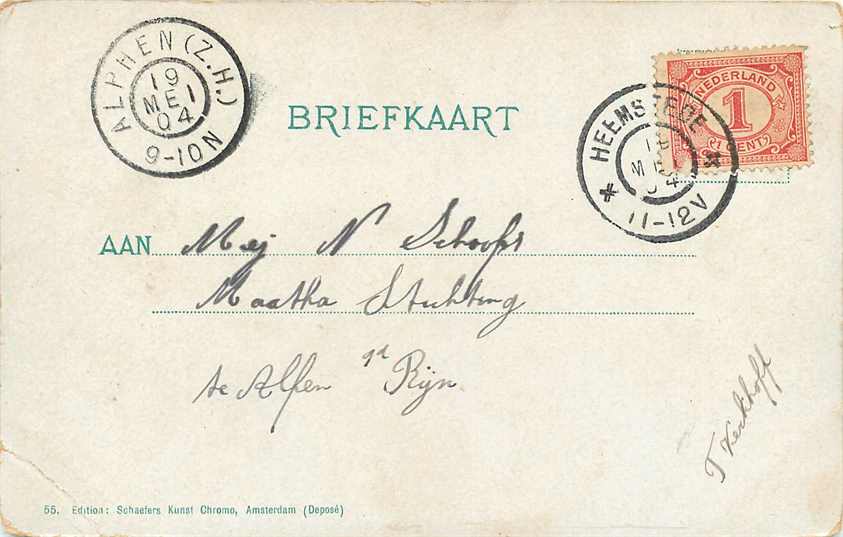 ALPHEN (Z.H.)
19
MEI
04
9-10N
BRIEFKAART
NEDERLAND
1
(1 CENT)
HEEMSTEDE
MEI
04
11-12V
AAN Mej N Schoofs
Maatha Stichting
te Alfen a/d Rijn
T Kerkhoff
55. Edition: Schaefers Kunst Chromo, Amsterdam (Deposé)